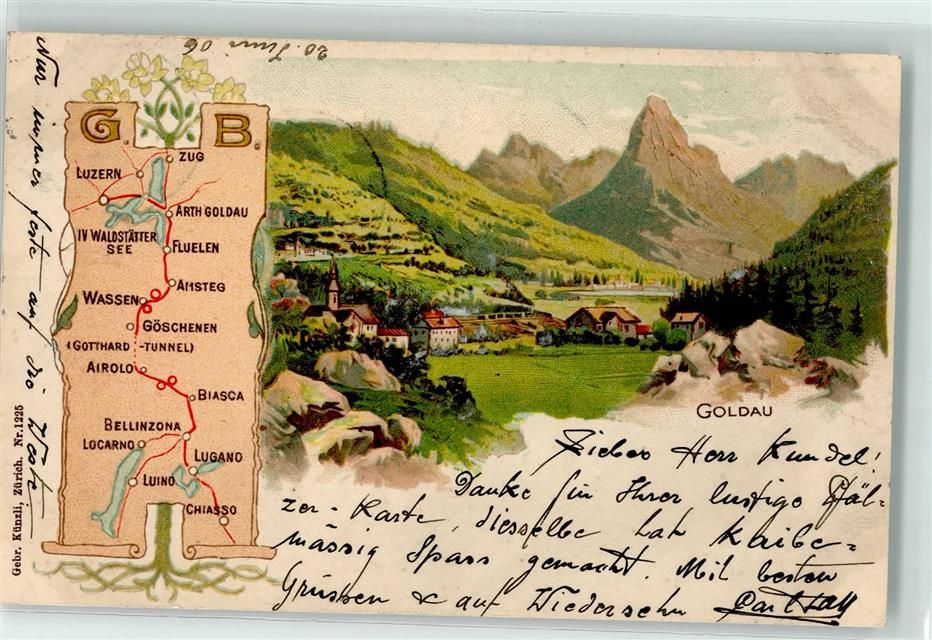 20. Juni 06
G. B.
ZUG
LUZERN
ARTH GOLDAU
IV WALDSTÄTTER
SEE
FLUELEN
AMSTEG
WASSEN
GÖSCHENEN
(GOTTHARD-TUNNEL)
AIROLO
BIASCA
BELLINZONA
LOCARNO
LUGANO
LUINO
CHIASSO
GOLDAU
Lieber Herr Kundel!
Danke für Ihrer lustige Pfäl-
zer-Karte, diesselbe hat kaibe-
mässig Spass gemacht. Mit besten
Grüssen & auf Wiedersehn
Nur immer feste auf die Weste
Gebr. Künzli, Zürich. Nr. 1225